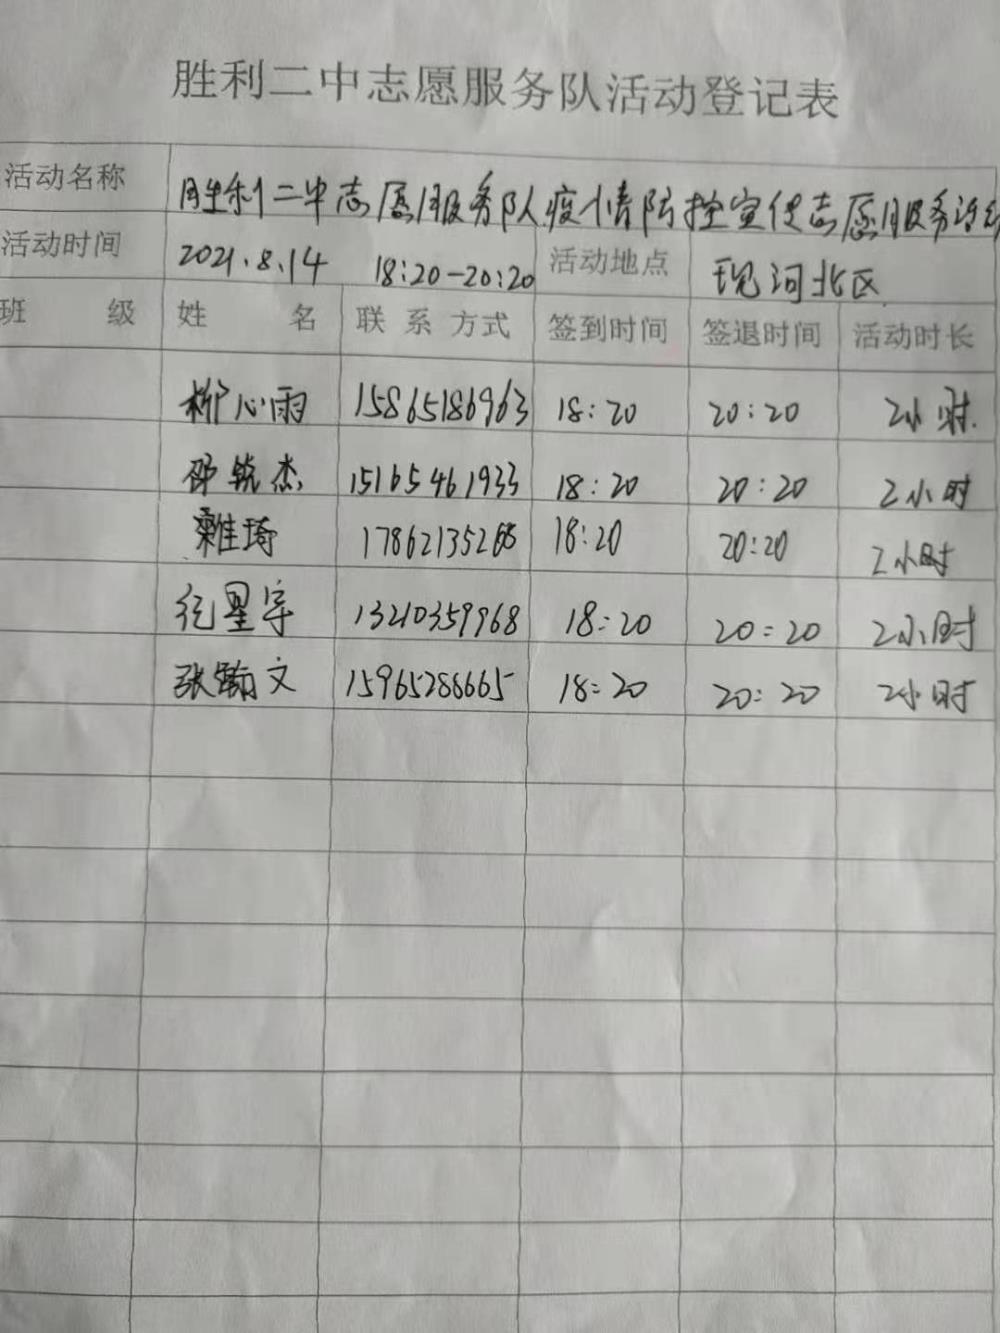 胜利二中志愿服务队活动登记表
活动名称 胜利二中志愿服务队疫情防控宣传志愿服务活动
活动时间 2021.8.14 18:20-20:20 活动地点 现河北区
班 级 姓 名 联 系 方式 签到时间 签退时间 活动时长
柳心雨 15865186963 18:20 20:20 2小时.
邵锐杰 15165461933 18:20 20:20 2小时
17862135268 18:20 20:20 2小时
纪星宇 13210359968 18:20 20:20 2小时
张瀚文 15965286665 18:20 20:20 2小时